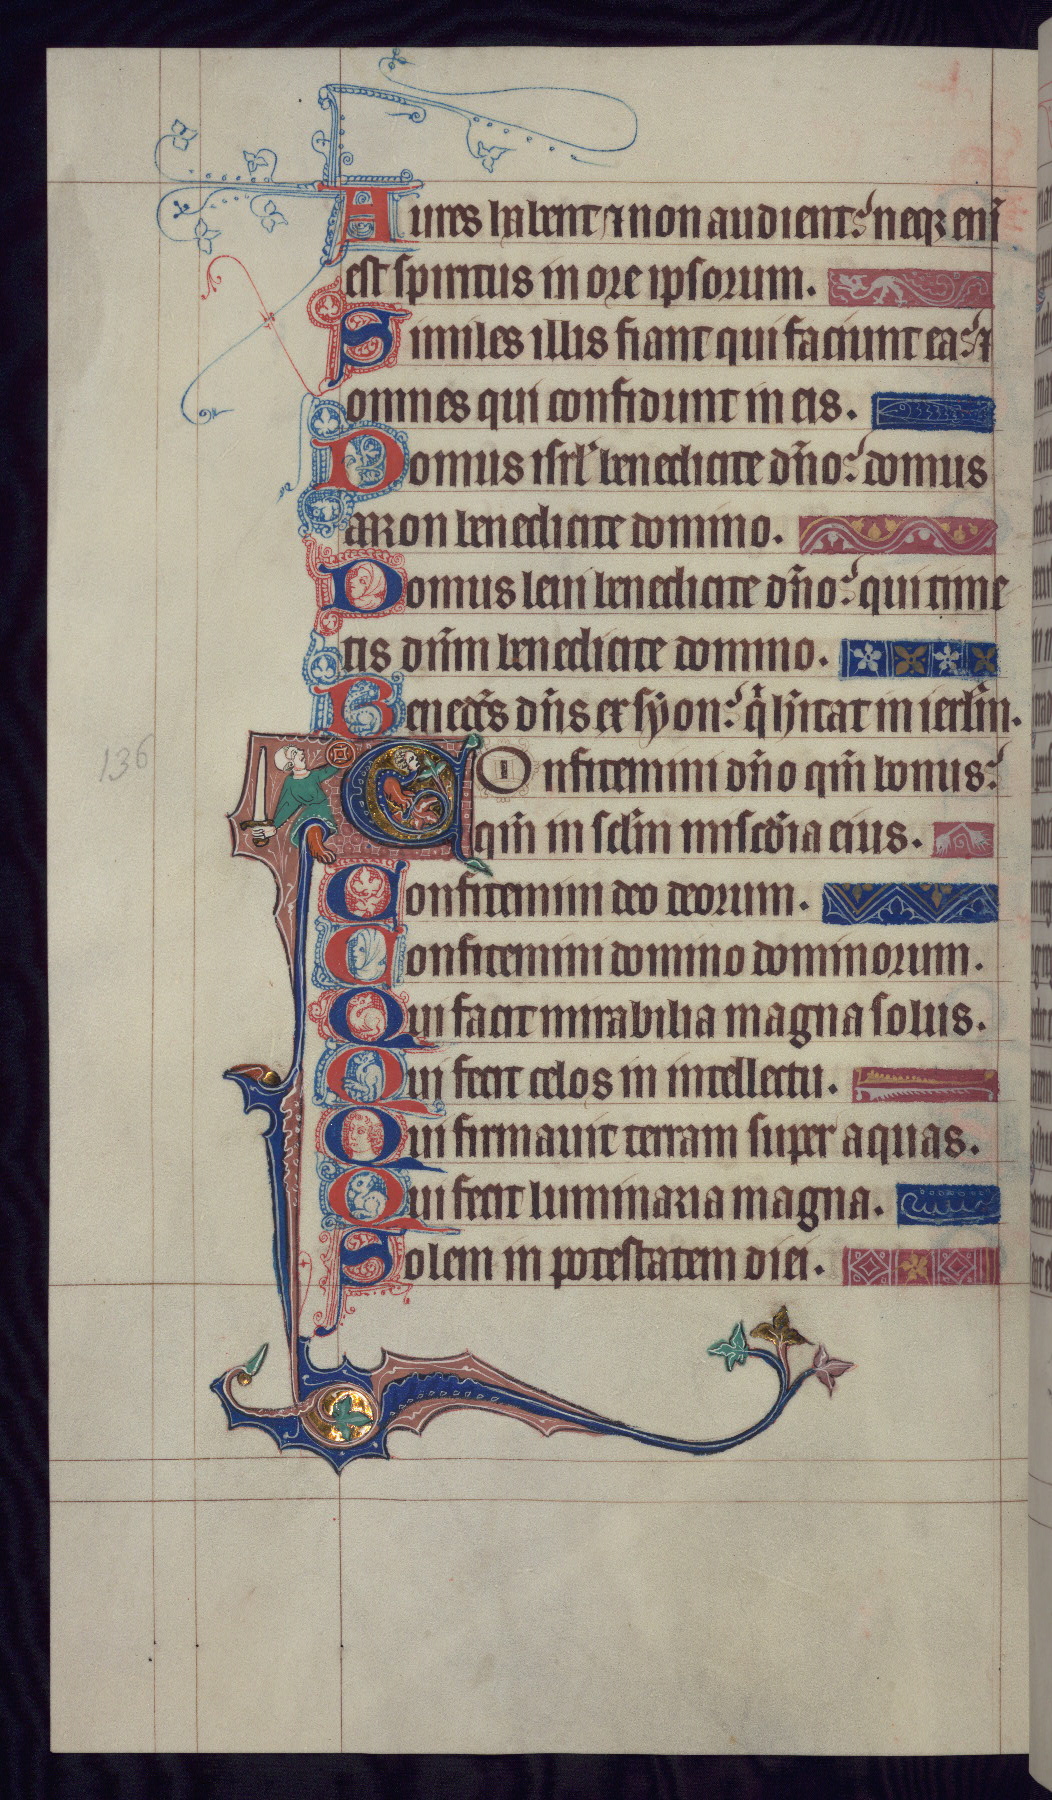 Aures habent ⁊ non audient: neqꝫ eni̅
est spiritus in ore ipsorum.
Similes illis fiant qui faciunt ea: ⁊
omnes qui confidunt in eis.
Domus isrl' benedicite dn̅o: domus
aaron benedicite domino.
Domus leui benedicite dn̅o: qui time
tis dn̅m benedicite domino.
Bened̅s dn̅s ex syon: q̅ h̅itat in ierlm̅.
136
Confitemini dn̅o qm̅ bonus:
qm̅ in sc̅lm miscd̅ia eius.
Confitemini deo deorum.
Confitemini domino dominorum.
Qui facit mirabilia magna solus.
Qui fecit celos in intellectu.
Qui firmauit terram super aquas.
Qui fecit luminaria magna.
Solem in potestatem diei.